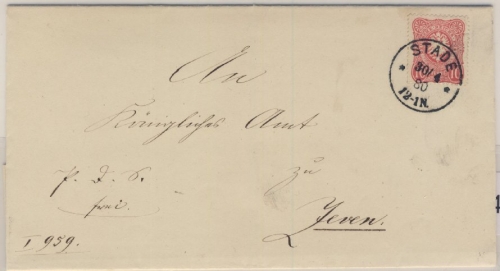 STADE
30/4
80
12-1N.
10
An
Königliches Amt
zu
Zeven.
P. D. S.
frei.
I 959.